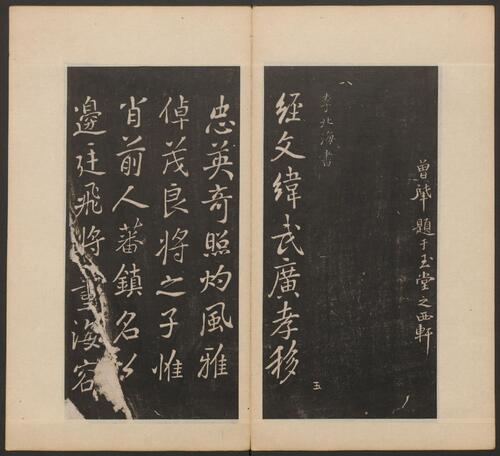 曾肇題于玉堂之西軒
李北海書
經文緯武廣孝移
五
忠英奇照灼風雅
倬茂良將之子惟
肖前人蕃鎮名
邊廷飛將海容